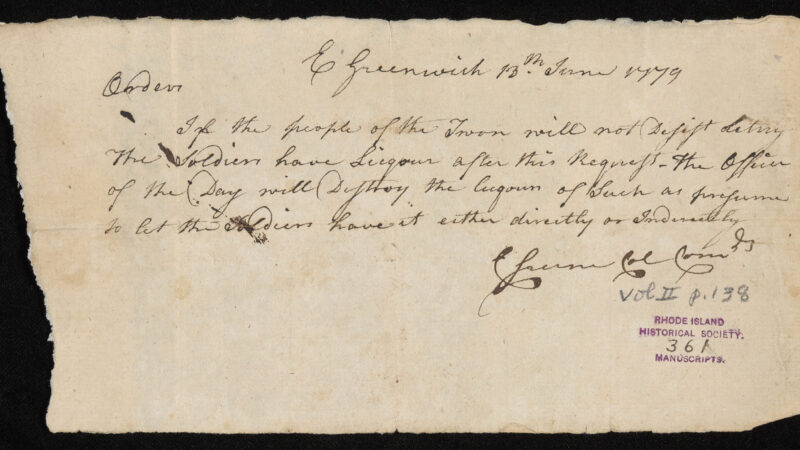 E Greenwich 13th June 1779
Orders
If the people of the Twon will not Desist Leting
The Soldiers have Liegour after this Request - the Officer
of the Day will Destroy the Legours of Such as presume
to let the Soldiers have it either directly or Indirectly
C Greene Col Comds
Vol II p.138
RHODE ISLAND
HISTORICAL SOCIETY.
361
MANUSCRIPTS.